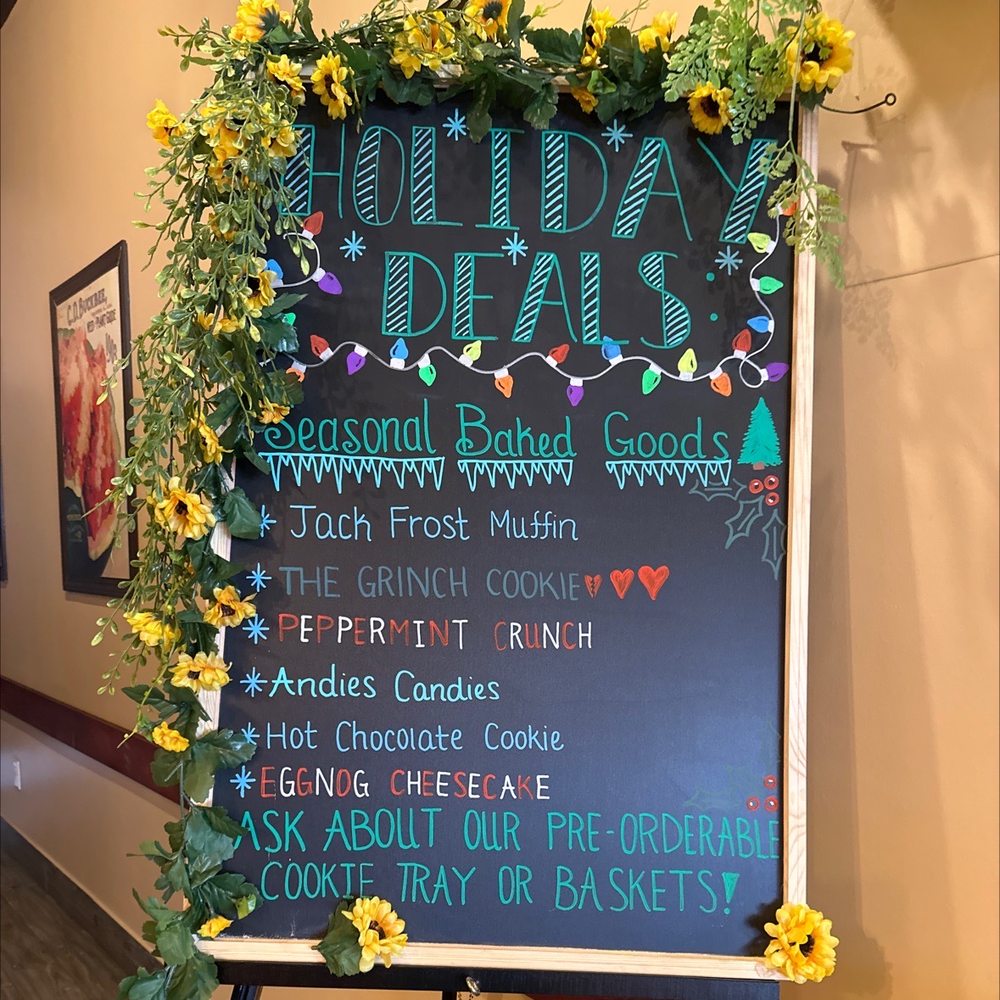 HOLIDAY
DEALS
Seasonal Baked Goods
Jack Frost Muffin
THE GRINCH COOKIE
PEPPERMINT CRUNCH
Andies Candies
Hot Chocolate Cookie
EGGNOG CHEESECAKE
ASK ABOUT OUR PRE-ORDERABLE
COOKIE TRAY OR BASKETS!